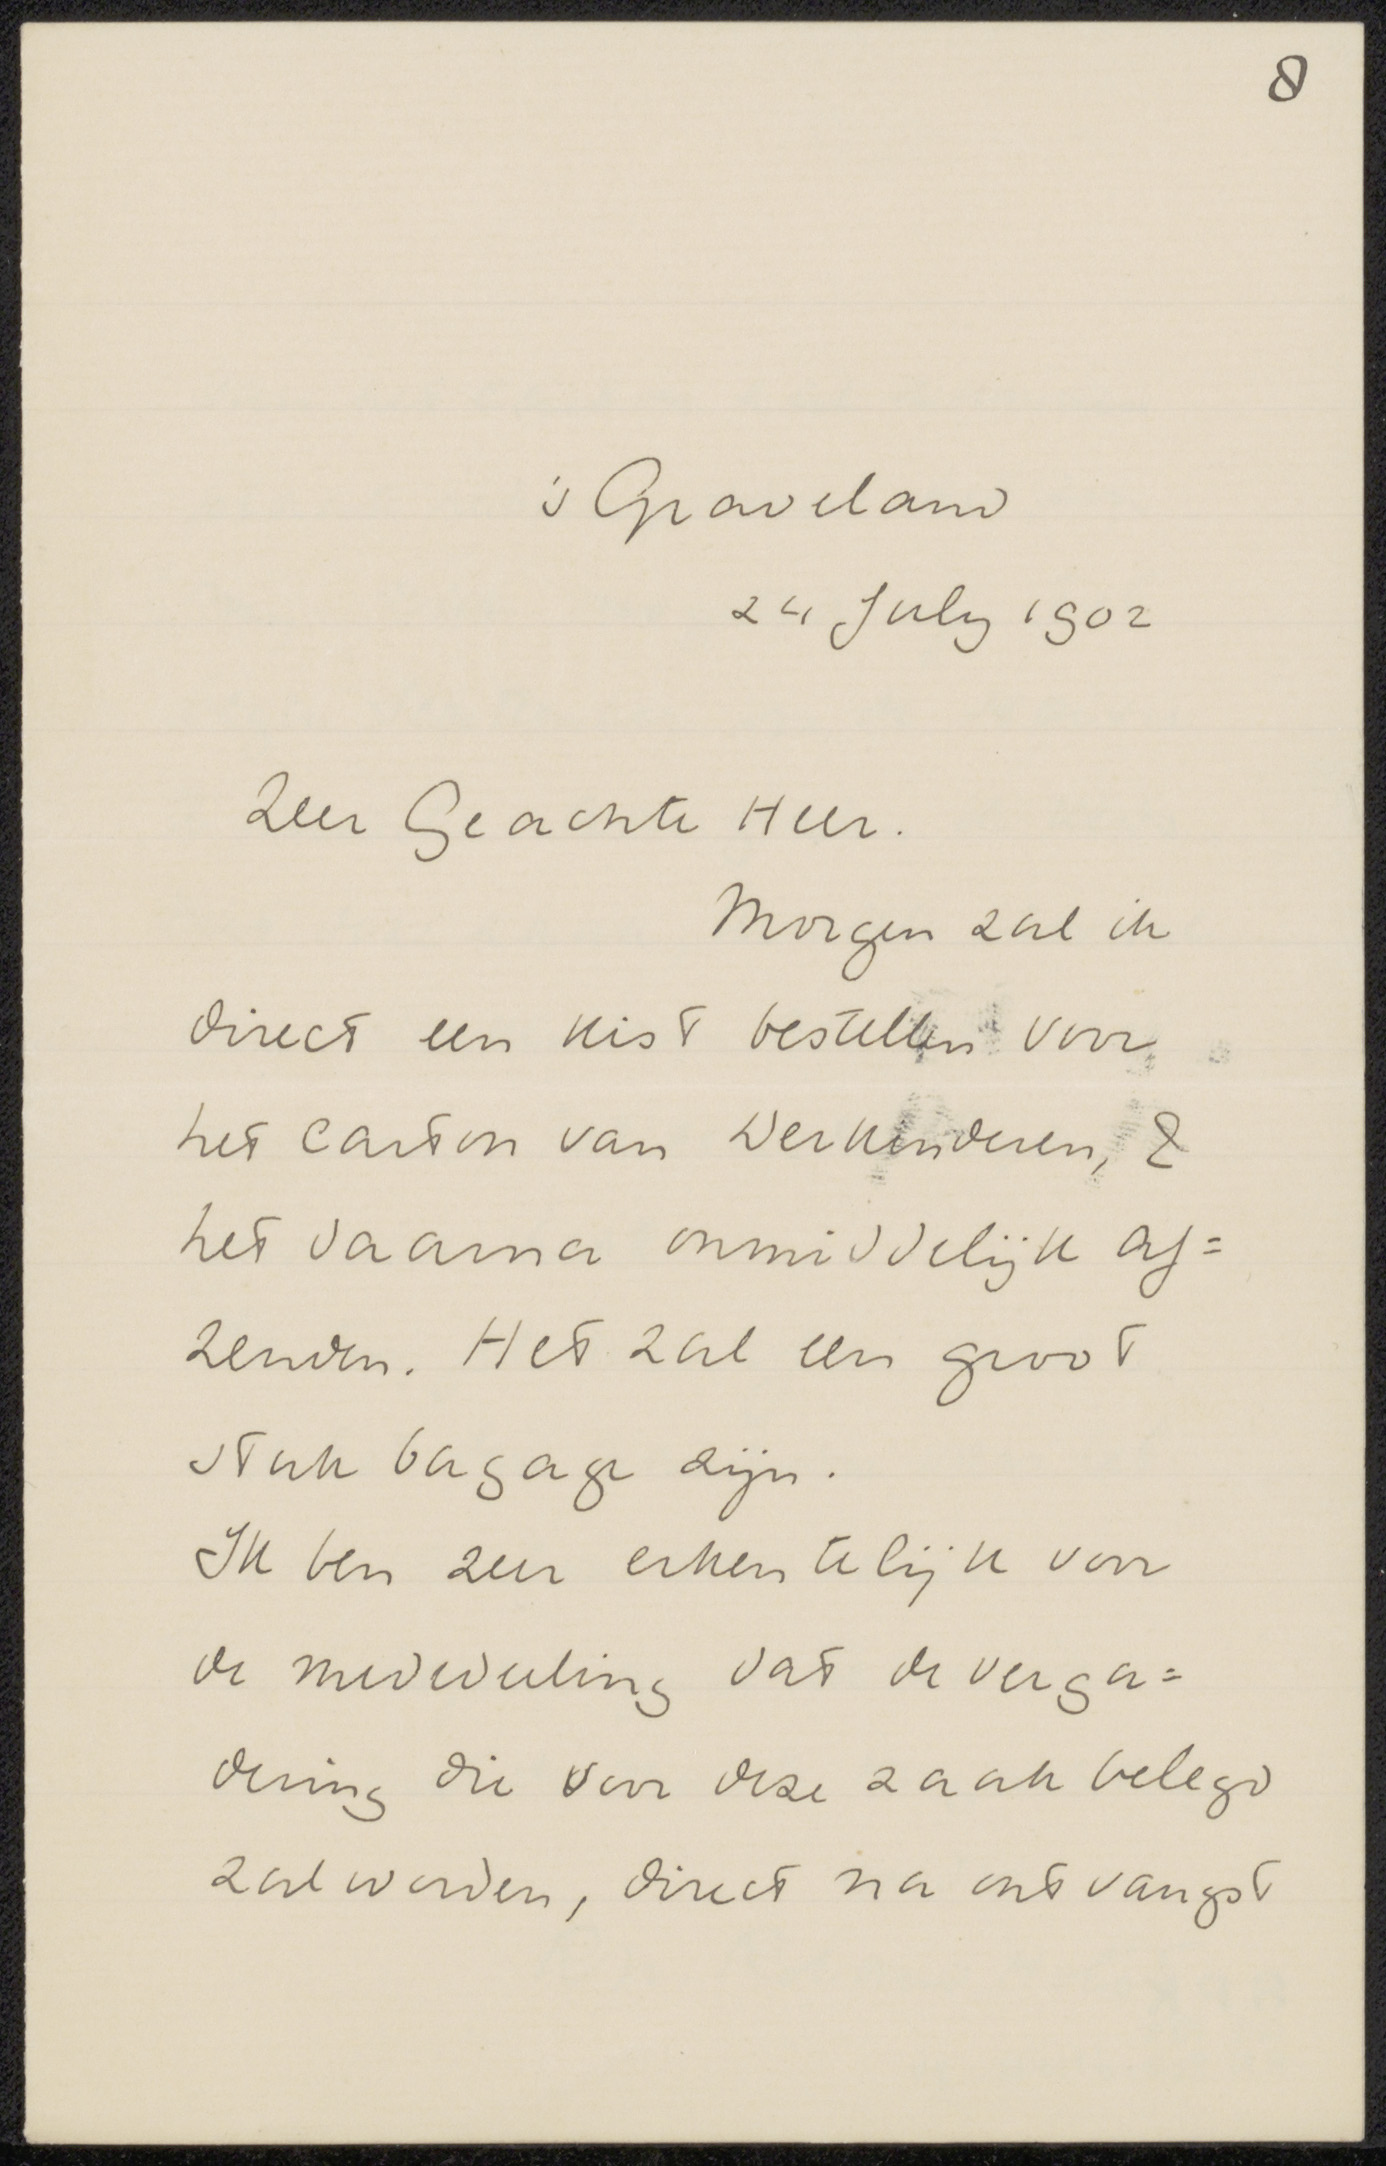 8
's Graveland
24 July 1902
Zeer Geachte Heer.
Morgen zal ik
direct een kist bestellen voor
het carton van Derkinderen, &
het daarna onmiddelijk af=
zenden. Het zal een groot
stuk bagage zijn.
Ik ben zeer erkentelijk voor
de mededeeling dat de verga=
dering die voor deze zaak belegd
zal worden, direct na ontvangst